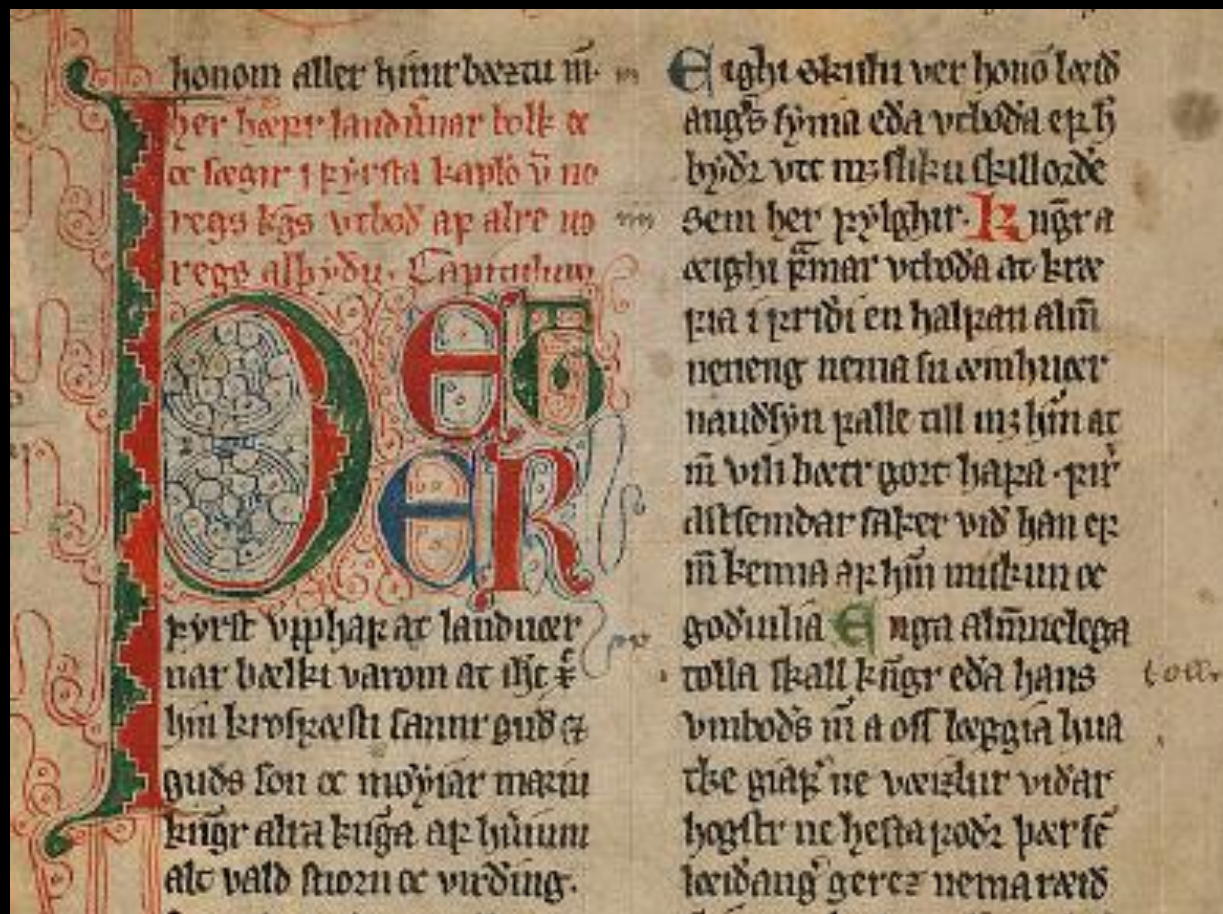 honom aller hinir bæztu m̄.
her hæfir landuarnar bolk ok
ok sægir i fyrsta kapło v̄ no
regs kgs vtboð af alre no
regs alþyðu. Capitulum
ÞET
ER
fyrst vpphaf at landuær
nar bælki varom at ihc
hin krosfæsti sannr guð
guðs son ok møyiar mariu
kngr alra kunga af hinum
alt vald stiorn ok virðing.
Eighi skulu ver honō læið
angs syma eða vtboða er h
byðr vtt mz sliku skillorðe
sem her fylghir. Kungr a
æighi fmar vtboða at kræ
fia i friði en halfan alm̄
neneng nema su æmhuær
nauðsyn falle till mz hin at
m̄ vili bætr gort hafa. firr
astsemdar saker við han er
m̄ kenna af him miskun ok
goðuilia Enga almnelega
tolla skall kngr eða hans
vmboðs m̄ a oss læggia hua
tke giaf ne væizlur viðar
hogstr ne hesta foðr þær sē
læiðang gerez nema ræið